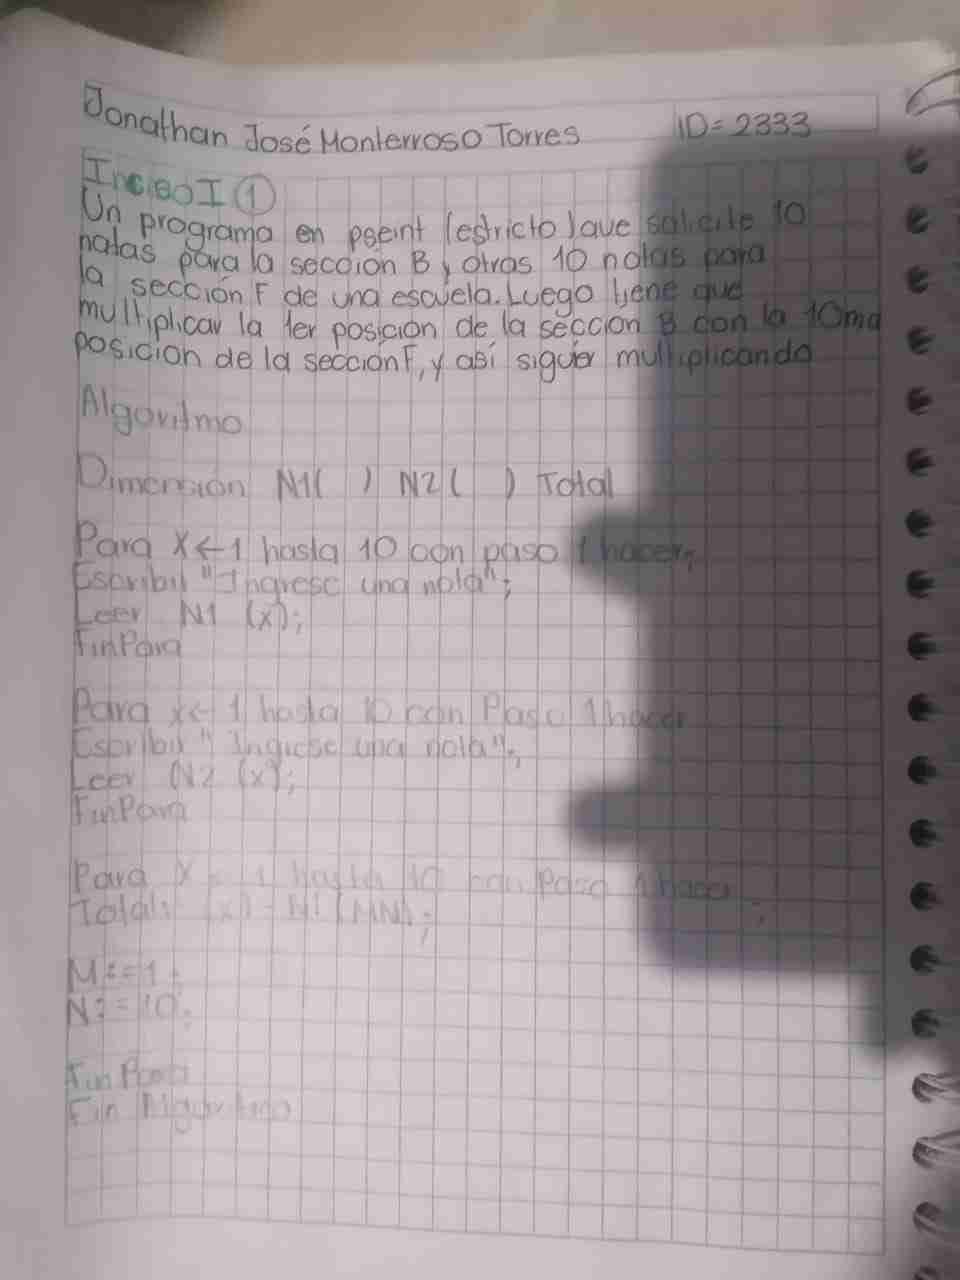 Jonathan José Monterroso Torres ID=2333
Inciso I 1
Un programa en pseint (estricto) que solicite 10
notas para la sección B y otras 10 notas para
la sección F de una escuela. Luego tiene que
multiplicar la 1er posición de la sección B con la 10ma
posicion de la sección F, y así seguir multiplicando
Algoritmo
Dimensión N1( ) N2( ) Total
Para X←1 hasta 10 con paso 1 hacer;
Escribir "Ingrese una nota";
Leer N1 (x);
FinPara
Para x←1 hasta 10 con Paso 1 hacer
Escribir "Ingrese una nota";
Leer N2 (x);
FinPara
Para X 1 hasta 10 con Paso 1 hacer ;
Total (x) N1
M:=1;
N:=10;
FinPara
Fin Algoritmo